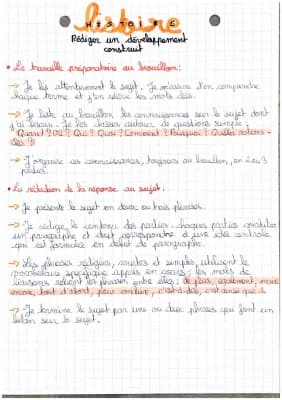 histoire
HISTOIRE
Rédiger un développement
construit
• Le travaille préparatoire au brouillon:
→ Je lis attentivement le sujet. Je m'assure d'en comprendre
chaque terme et j'en relève les mots clés.
→ Je liste au brouillon, les connaissances sur le sujet dont
j'ai besoin. Je les classes autour de questions simple:
Quand? Où? Qui? Quoi? Comment? Pourquoi? Quelles notions-
clés?
→ J'organise ces connaissances, toujours au brouillon, en 2 ou 3
parties.
• La rédaction de la réponse au sujet:
→ Je présente le sujet en deux ou trois phrases.
→ Je rédige le contenu des parties: chaques parties constitue
un paragraphe et doit correspondre à une idée centrale
qui est formulée en début de paragraphe.
→ Les phrases rédigées, courtes et simples, utilisent le
vocabulaire spécifique appris en cours; les mots de
liaisons relient les phrases entre elles: de plus, également, mais
encore, tout d'abord, pour conclure, c'est-à-dire, c'est ainsi que
→ Je termine le sujet par une ou deux phrases qui font un
bilan sur le sujet.